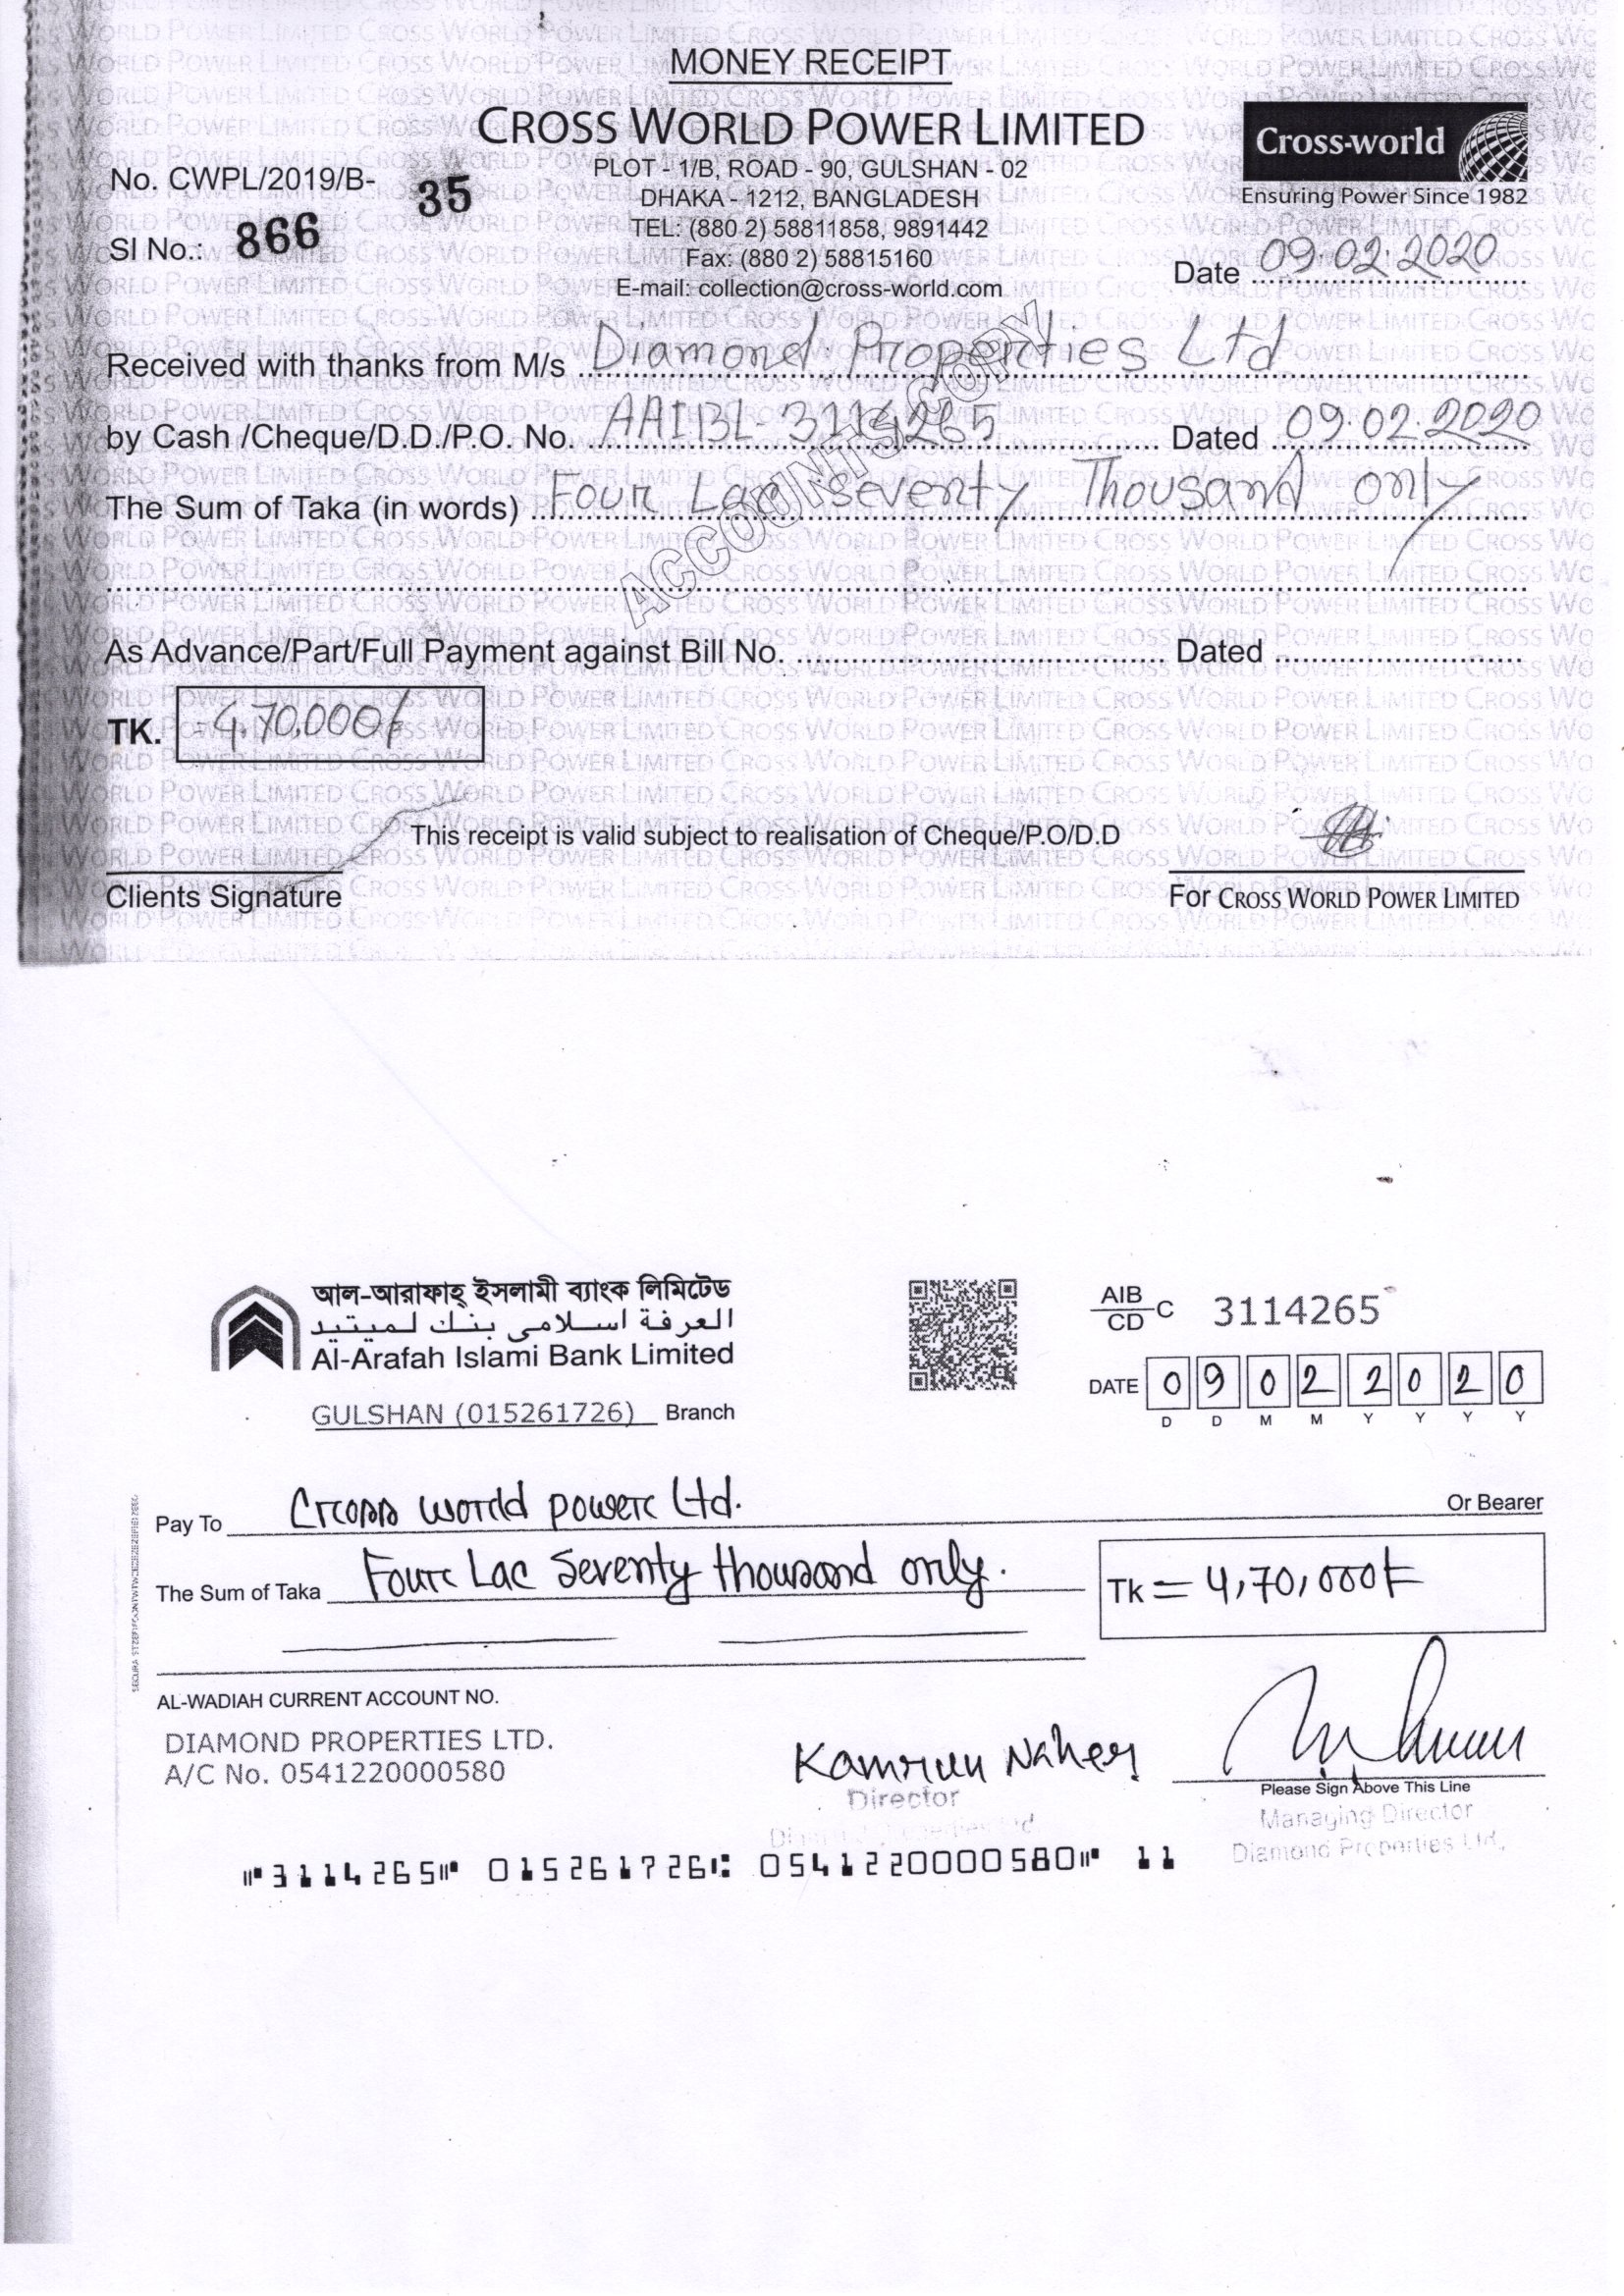 MONEY RECEIPT
CROSS WORLD POWER LIMITED
Cross-world
Ensuring Power Since 1982
PLOT - 1/B, ROAD - 90, GULSHAN - 02
DHAKA - 1212, BANGLADESH
TEL: (880 2) 58811858, 9891442
Fax: (880 2) 58815160
E-mail: collection@cross-world.com
No. CWPL/2019/B- 35
Sl No.: 866
Date 09.02.2020
Received with thanks from M/s Diamond Properties Ltd
by Cash /Cheque/D.D./P.O. No. AAIBL-3114265 Dated 09.02.2020
The Sum of Taka (in words) Four Lac Seventy Thousand only
ACCOUNTS COPY
As Advance/Part/Full Payment against Bill No. Dated
TK. 4,70,000/
This receipt is valid subject to realisation of Cheque/P.O/D.D
Clients Signature
For CROSS WORLD POWER LIMITED
আল-আরাফাহ্ ইসলামী ব্যাংক লিমিটেড
العرفة اسلامى بنك لميتيد
Al-Arafah Islami Bank Limited
GULSHAN (015261726) Branch
AIB
CD C 3114265
DATE 0 9 0 2 2 0 2 0
D D M M Y Y Y Y
Pay To Cross world power Ltd. Or Bearer
The Sum of Taka Four Lac Seventy thousand only.
Tk = 4,70,000/=
AL-WADIAH CURRENT ACCOUNT NO.
DIAMOND PROPERTIES LTD.
A/C No. 0541220000580
Kamrun Naher
Director
Please Sign Above This Line
Managing Director
Diamond Properties Ltd.
⑈3114265⑈ 015261726⑆ 0541220000580⑈ 11